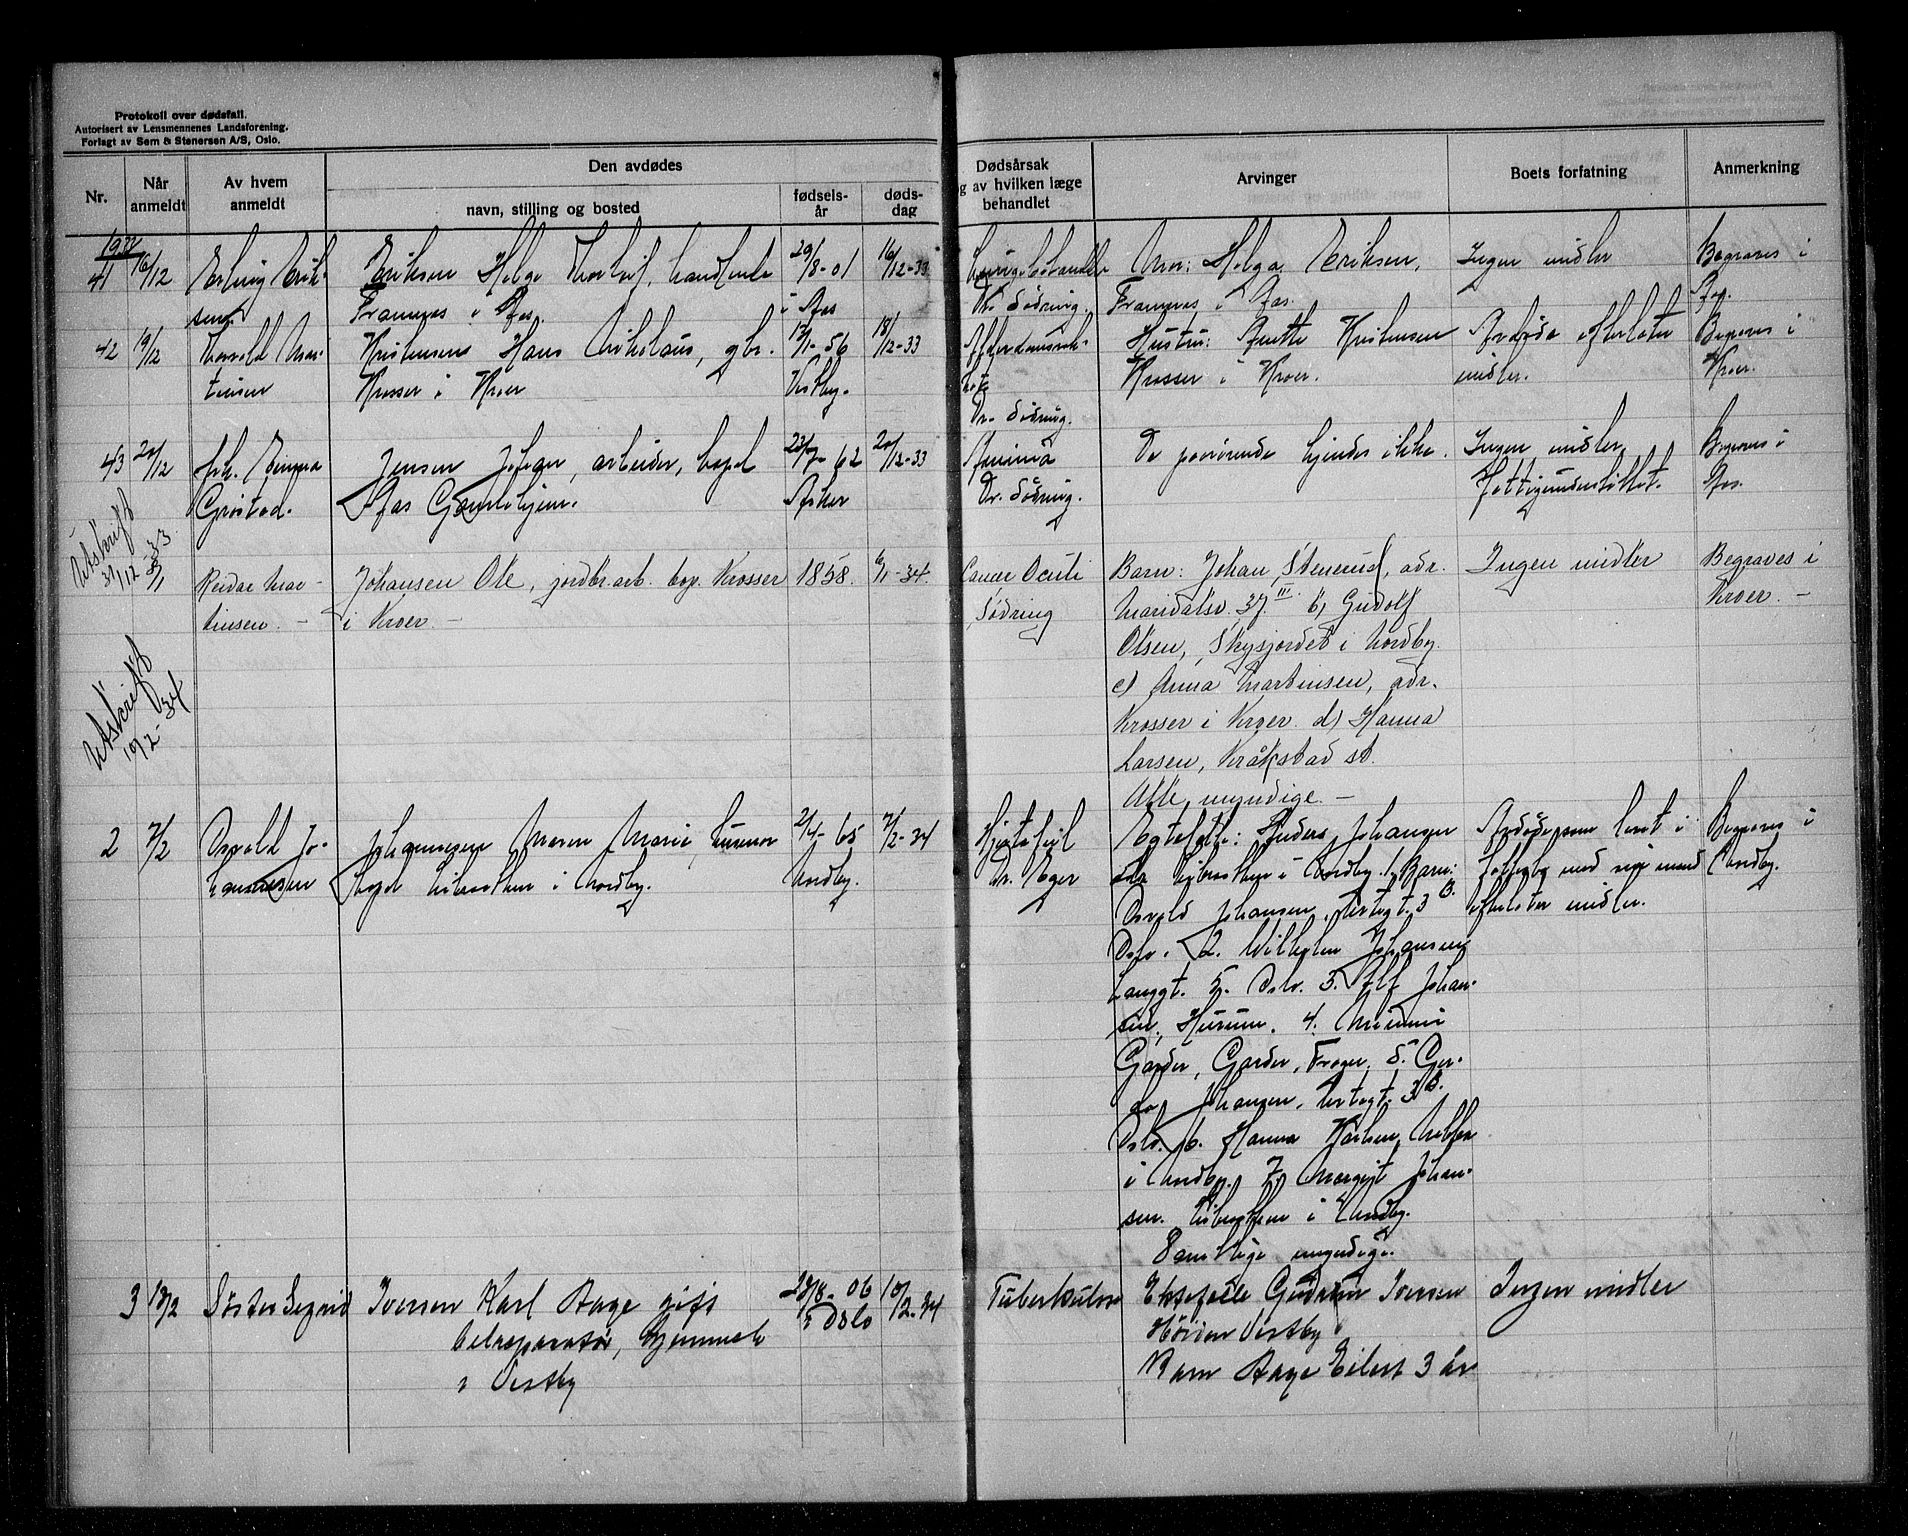 Protokoll over dødsfall.
Autorisert av Lensmennenes Landsforening.
Forlagt av Sem & Stenersen A/S, Oslo.
Nr.
Når anmeldt
Av hvem anmeldt
Den avdødes
navn, stilling og bosted
fødsels-
år
døds-
dag
Dødsårsak
og av hvilken læge
behandlet
Arvinger
Boets forfatning
Anmerkning
41 16/12 Erling Erik-
sen
Eriksen Helge Thorleif, handlende
i Aas.
29/8-01
i Aas
16/12-33
Dr. Södring.
Mor: Helga Eriksen,
i Aas.
Ingen midler
Begraves i
Aas.
42 19/12 Thorvald Mar-
tinsen
Kristensen Hans Nikolaus, gbr.
Krosser i Kroer
-56
Vestby.
18/12-33
Dr. Södring.
Hustru: Anette Kristensen
Krosser i Kroer.
Avdøde efterlater
midler.
Begraves i
Kroer.
43
Grøstad.
Jensen Johan, arbeider, bopel
Aas Gamlehjem.
23/7-62
Asker
20/12-33
Dr. Södring.
De pårørende kjendes ikke.
Ingen midler
Fattigunderstöttet.
Begraves i
Aas.
Utskrift
31/12-33
Reidar Mar-
tinsen. -
Johansen Ole, jordbr.arb. bop. Krosser
i Kroer. -
1858.
6/1-34.
Cancer Oculi
Södring
Barn: Johan Stenerud, adr.
Maridalsv. 37 III b) Gudolf
Olsen, Skysjordet i Nordby.
c) Anna Martinsen, adr.
Krosser i Kroer. d) Hanna
Larsen, Kråkstad st.
Alle myndige. -
Ingen midler
Begraves i
Kroer. -
Utskrift
10/2-34
2 7/2 Osvald Jo-
hannessen
Johannesen Maren Marie, husmor
i Nordby.
2/4-65
Nordby.
7/2-34
Hjertefeil
Dr. Eger
Egtefelle: Anders Johansen
i Nordby. 1. Barn:
Osvald Johansen, 3 B.
Oslo. 2. Wilhelm Johansen
Langgt. 5. Oslo. 3. Alf Johan-
sen, Hurum. 4. Minni
Garder, Garder, Frogn. 5. Ger-
da Johansen, 3 B.
Oslo. 6. Hanna Karlsen,
i Nordby. 7. Margit Johan-
sen. i Nordby.
Samtlige myndige.
efterlater midler.
Begraves i
Nordby.
3 13/2 Søster Sigrid
Iversen Karl Aage gift
bilreparatør, hjemmeh
i Vestby
28/8-06
i Oslo
10/2-34
Tuberkulose
Ektefelle Gudrun Iversen
Vestby
Barn Aage Eilert 3 år
Ingen midler